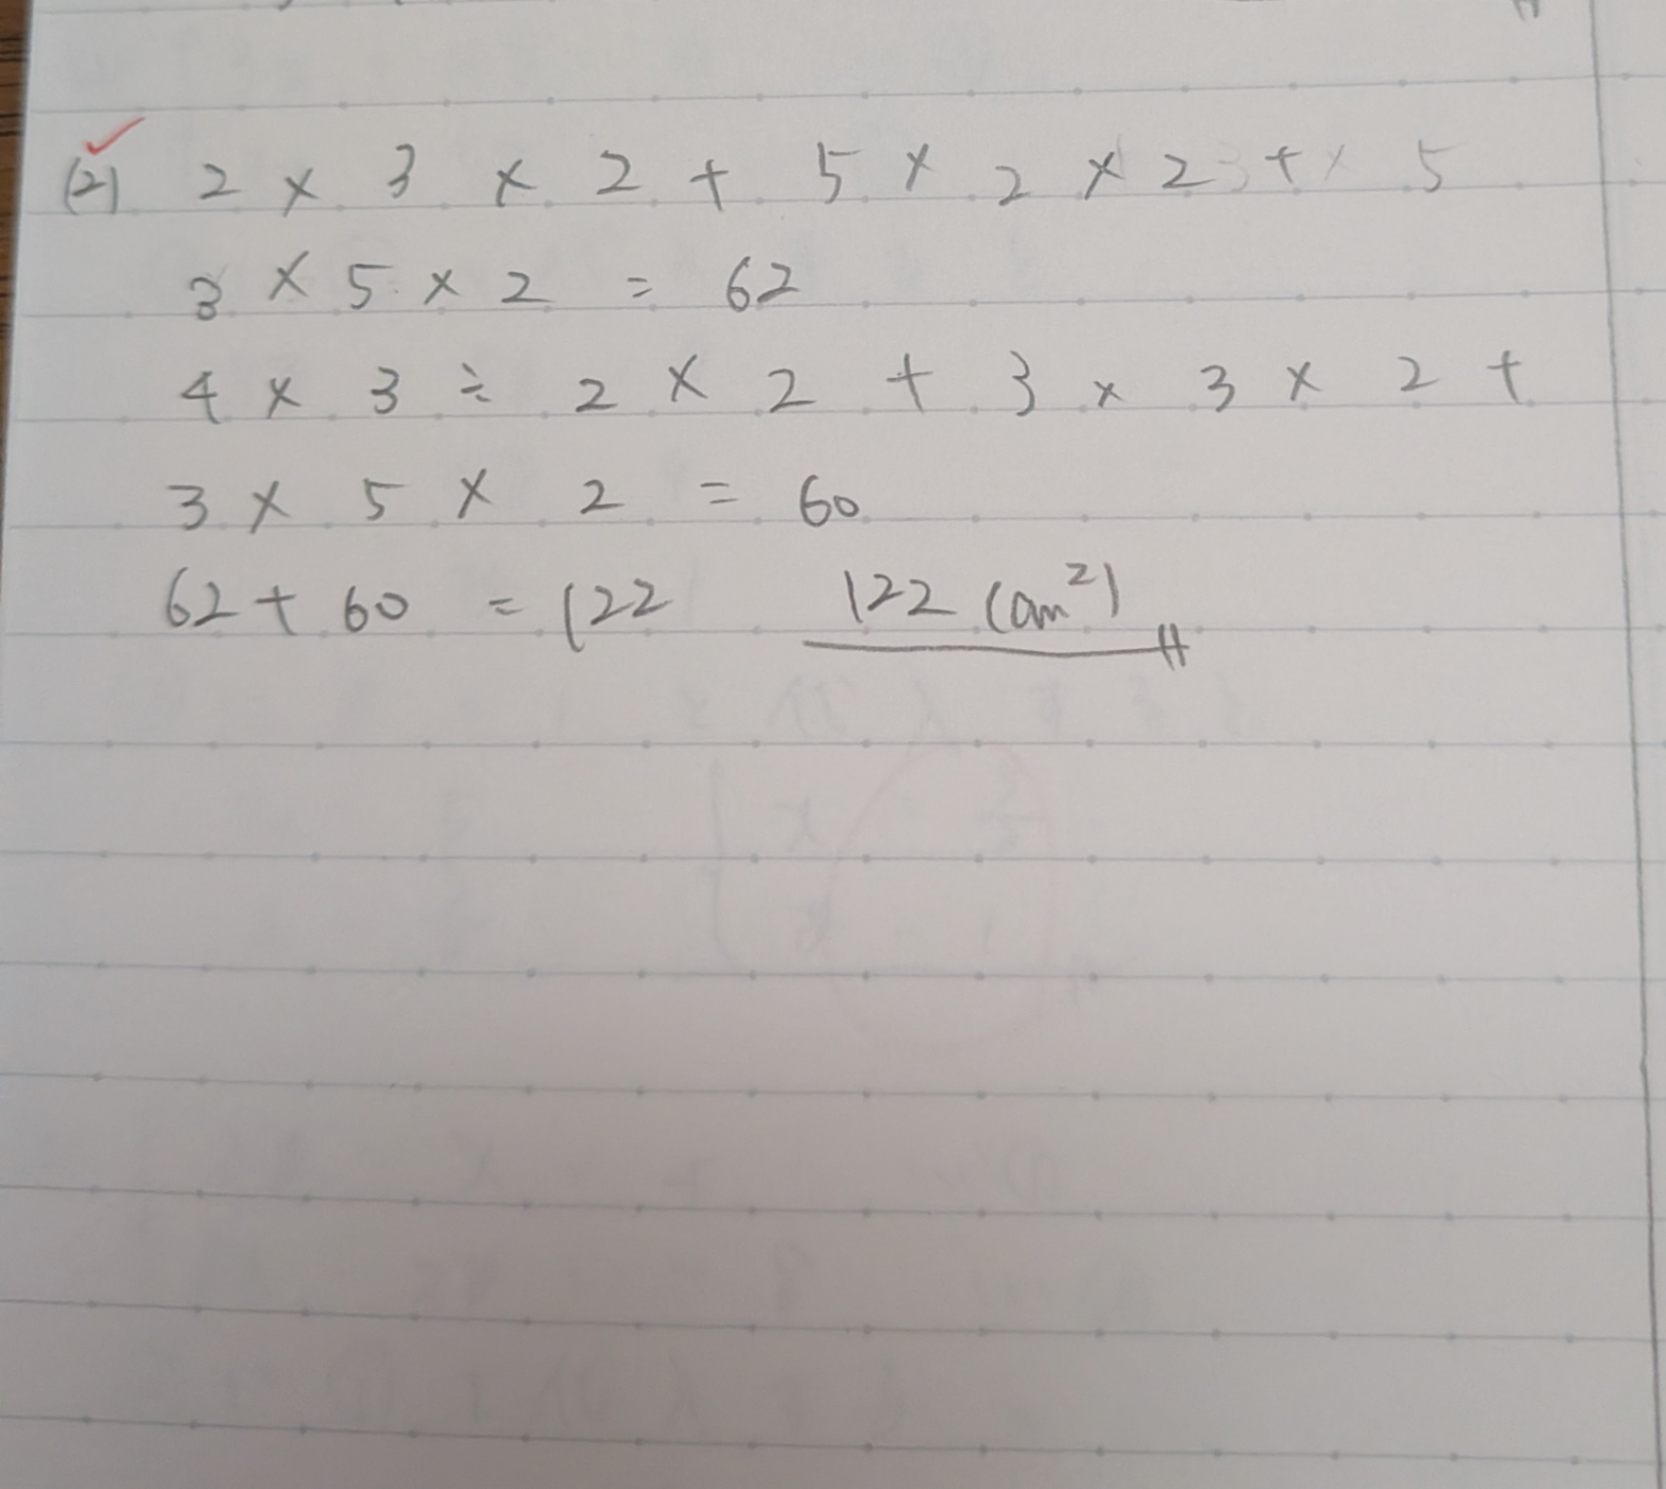 (2) 2 × 3 × 2 + 5 × 2 × 2 + 5
3 × 5 × 2 = 62
4 × 3 ÷ 2 × 2 + 3 × 3 × 2 +
3 × 5 × 2 = 60
62 + 60 = 122 122 (cm²)